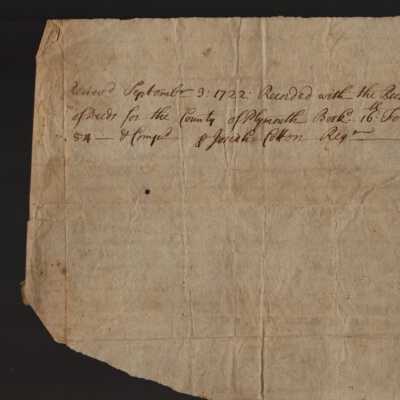 Receiv'd September 3: 1722: Recorded with the Rec
of Deeds for the County of Plymouth Book: 16th: Fo
54 — & Comp'd ⅌ Josiah Cotton Regr